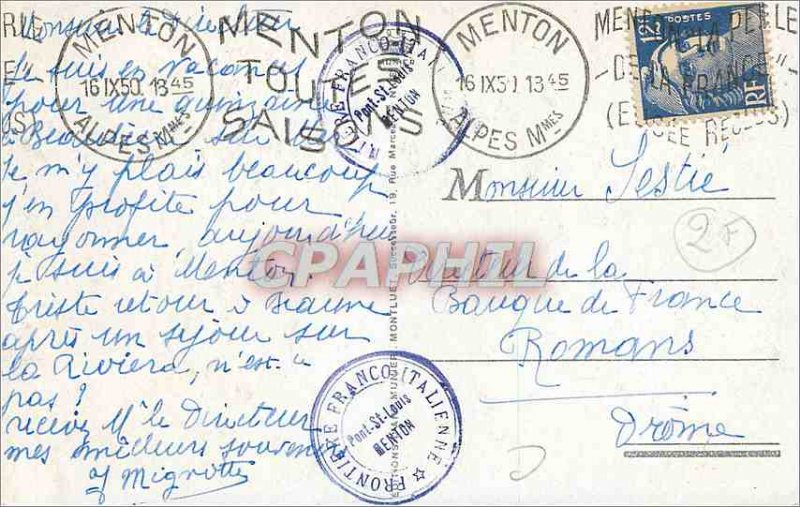 MENTON
16 IX 50 13 45
ALPES Mmes
MENTON
TOUTES
SAISONS
MENTON
16 IX 50 13 45
ALPES Mmes
LA PERLE
DE LA FRANCE"
POSTES
12F
RF
Monsieur le Directeur
Je suis en vacances
pour une quinzaine
à Beaulieu sur Mer
Je m'y plais beaucoup
j'en profite pour
rayonner, aujourd'hui
je suis à Menton.
triste retour à Beaune
après un séjour sur
la Riviera, n'est-ce
pas?
recevez Mr le Directeur
mes meilleurs souvenirs
Mignotte
FRONTIERE FRANCO-ITALIENNE
Pont-St-Louis
MENTON
FRONTIERE FRANCO-ITALIENNE
Pont-St-Louis
MENTON
MONTLUET, Successeur, 19, Rue
CPAPHIL
Monsieur Sestié
2F
Directeur de la
Banque de France
Romans
Drôme